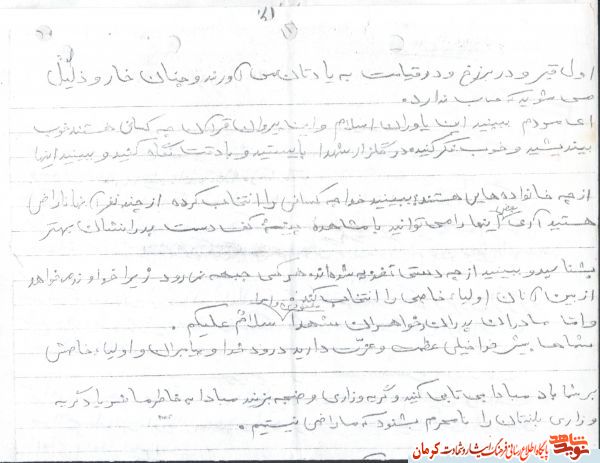 ۲۱
اول قبر و در برزخ و در قیامت به یادتان می آورند و چنان خار و ذلیل
می شوید که حساب ندارد.
ای مردم ببینید این یاوران اسلام و این پیروان قرآن چه کسانی هستند خوب
بیندیشید و خوب فکر کنید در گلزار شهدا بایستید و با دقت نگاه کنید و ببینید اینها
از چه خانواده هایی هستند، ببینید خدا چه کسانی را انتخاب کرده از چند نفر آنها ناراضی
هستید آری بعضی اینها را می توانید با مشاهده پینهٔ کف دست پدرانشان بهتر
بشناسید و ببینید از چه دستی تغذیه شده اند هر کسی جبهه نمی رود زیرا خداوند می خواهد
از بین آنان اولیاء خاصی را انتخاب کند
و اما مادران پدران خواهران شهدا سلام علیکم.
شماها پیش خدا خیلی عظمت و عزت دارید درود خدا و پیامبران و اولیاء خاصش
بر شما باد مبادا بی تابی کنید و گریه و زاری و ضجه بزنید مبادا به خاطر ما فریاد گریه
و زاری بلندتان را نامحرم بشنود که ما راضی نیستیم.
نوید شاهد
پایگاه اطلاع رسانی فرهنگ ایثار و شهادت کرمان